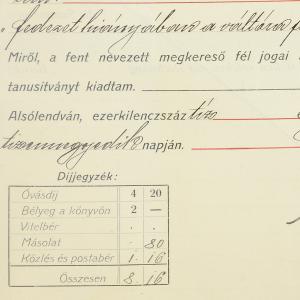 "fedezet hiányában a váltóra
Miről, a fent nevezett megkereső fél jogai
tanusitványt kiadtam.
Alsólendván, ezerkilenczszáz tíz
tizennegyedik napján.
Díjjegyzék:
Óvásdij 4 20
Bélyeg a könyvön 2 —
Vitelbér . .
Másolat . 80
Közlés és postabér 1 16
Összesen 8 16